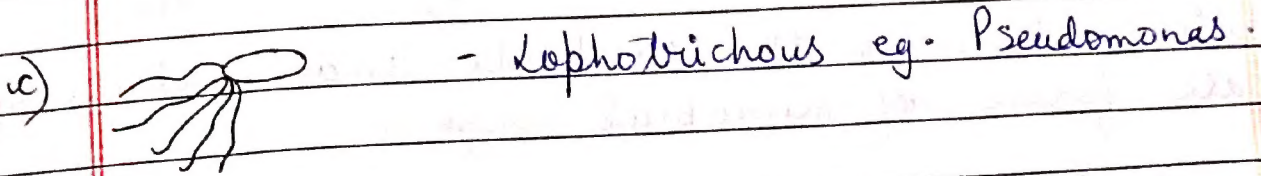 c) - Lophotrichous eg. Pseudomonas.